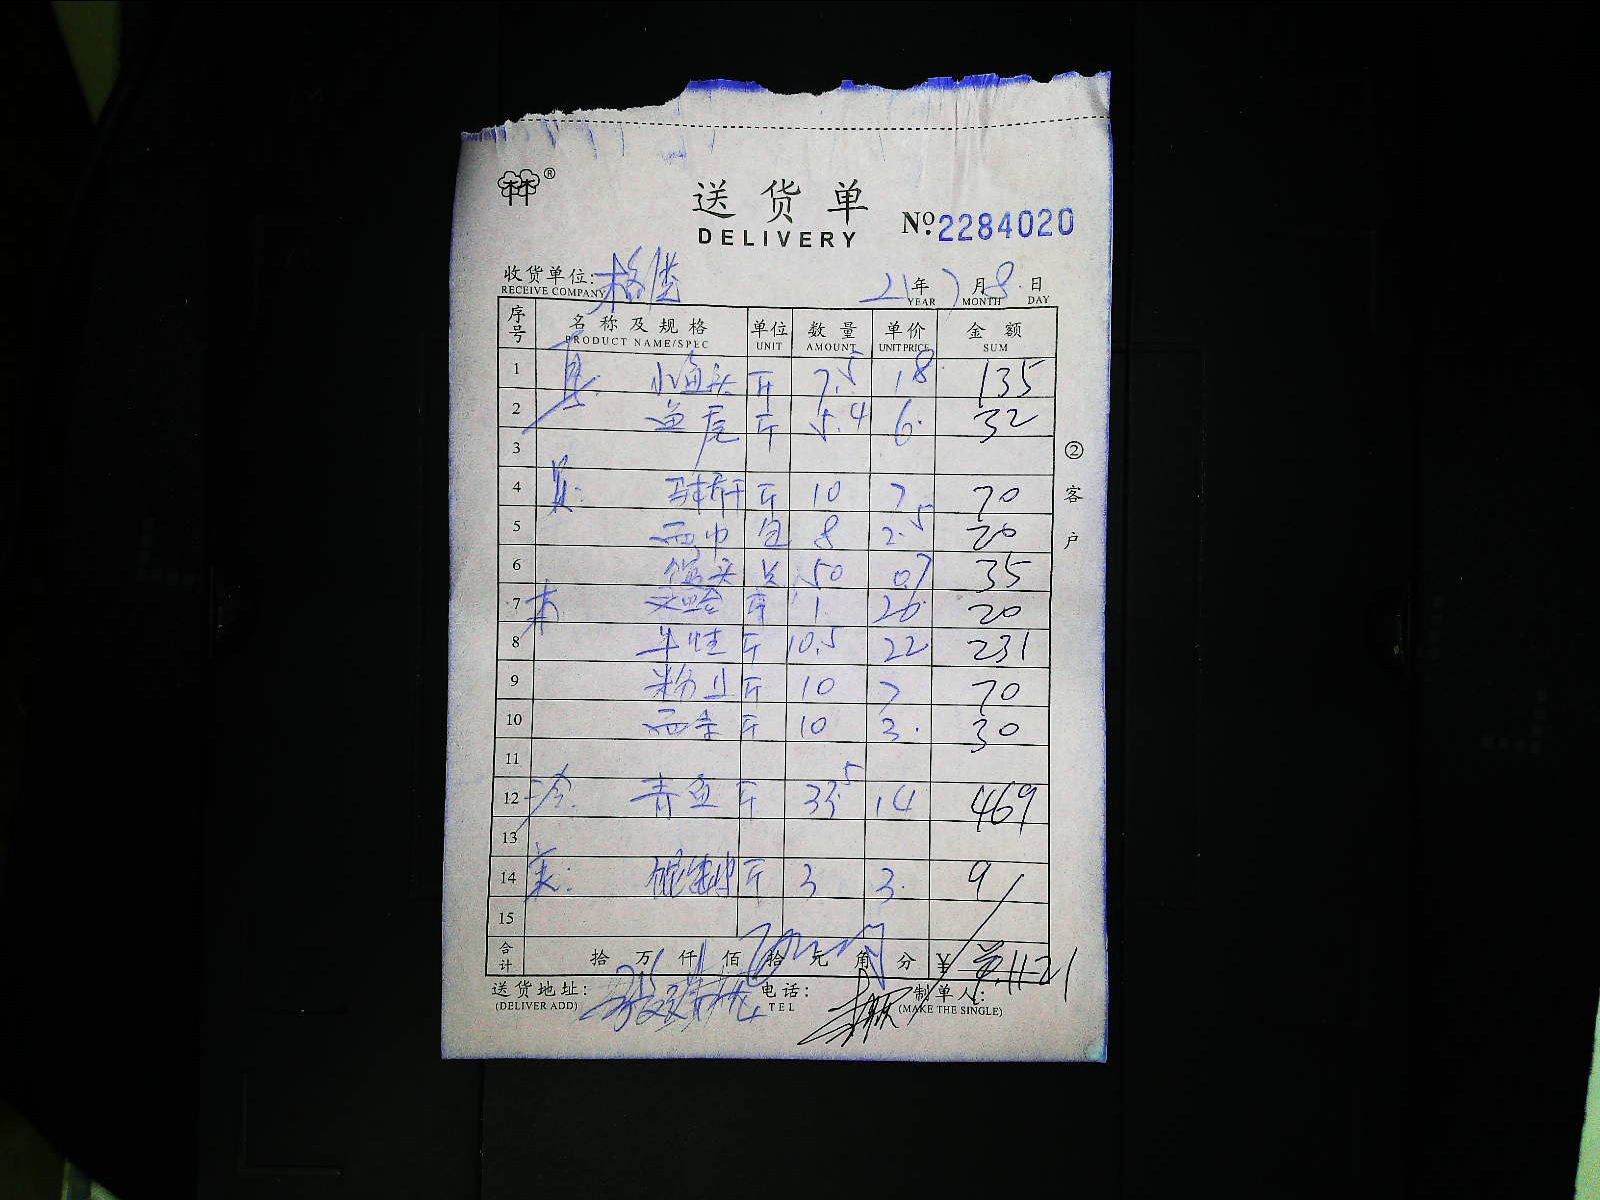 林®
送货单
DELIVERY
No.2284020
收货单位:
RECEIVE COMPANY
21年7月8日
YEAR MONTH DAY
序号 名称及规格 单位 数量 单价 金额
PRODUCT NAME/SPEC UNIT AMOUNT UNIT PRICE SUM
1 斤 7.5 18 135
2 鱼虎 斤 5.4 6. 32
3
4 斤 10 7 70
5 包 8 2.5 20
6 馒头 只 50 0.7 35
7 文蛤 斤 1 20 20
8 牛蛙 斤 10.5 22 231
9 粉皮 斤 10 7 70
10 斤 10 3. 30
11
12 冷 青鱼 斤 33.5 14 469
13
14 斤 3 3. 9
15
合计 拾万仟佰拾元角分 ¥ 1121
送货地址: 电话: 制单人:
(DELIVER ADD) TEL (MAKE THE SINGLE)
②客户